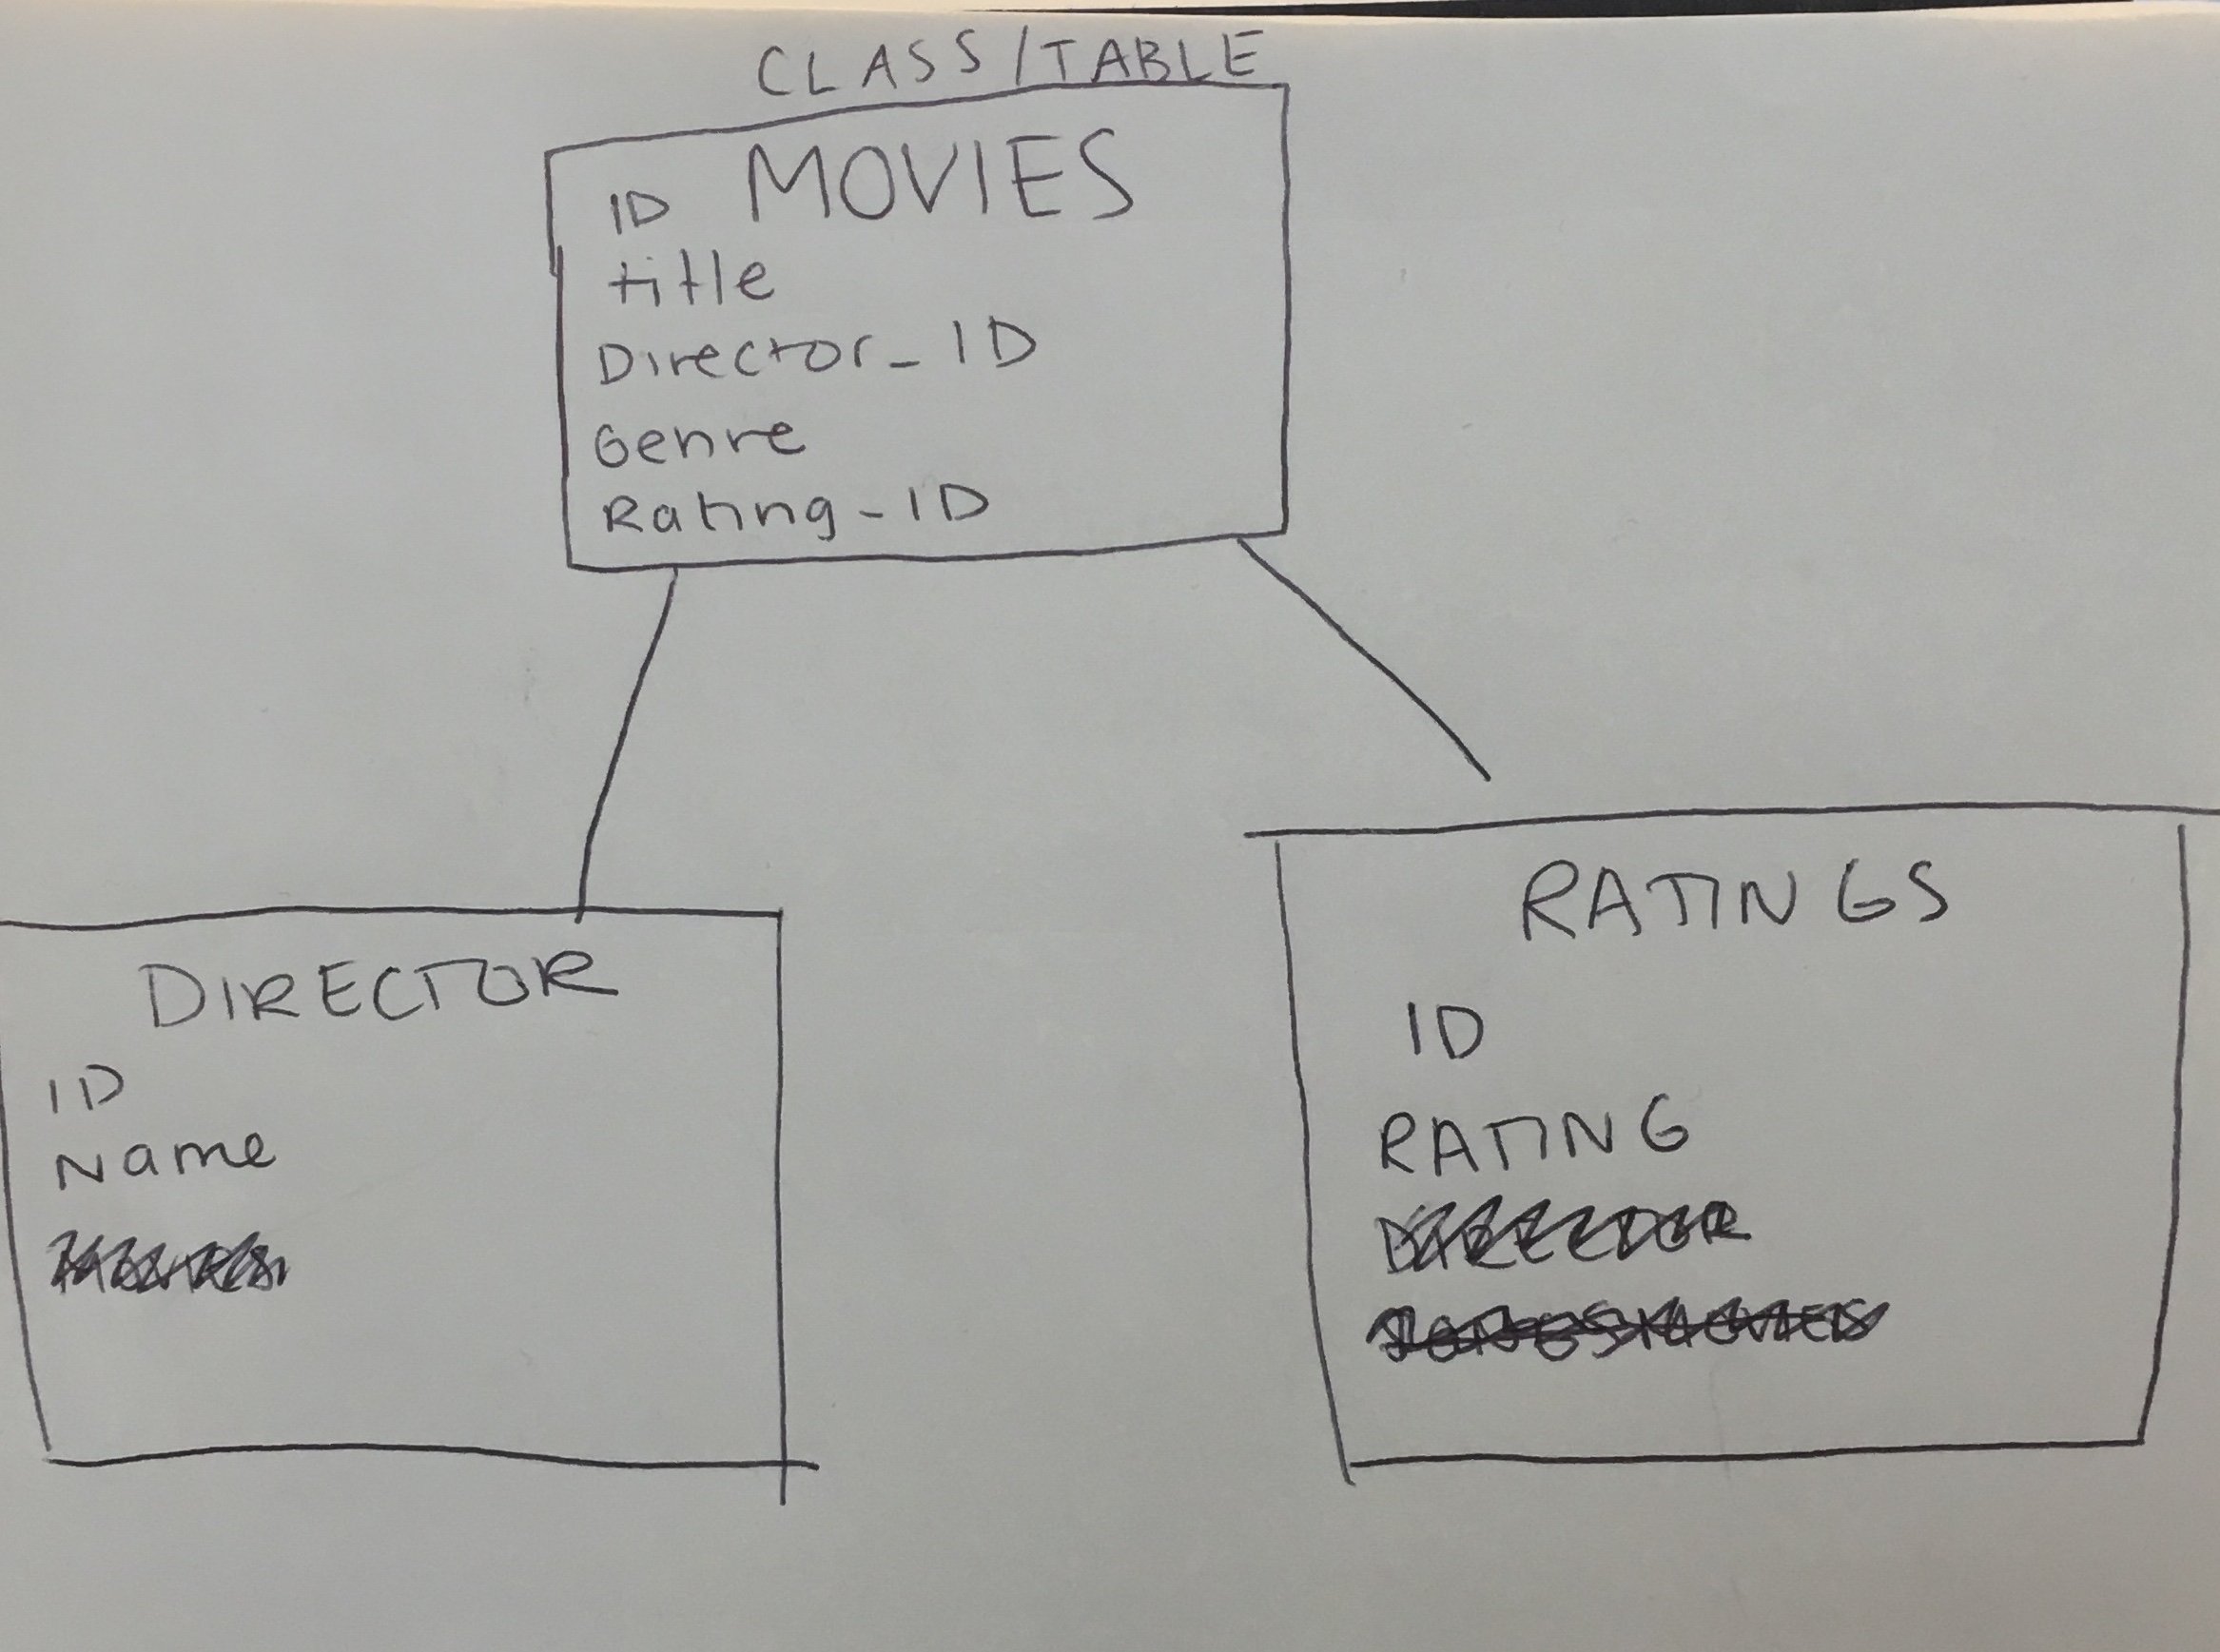 CLASS/TABLE
MOVIES
ID
title
Director_ID
Genre
Rating_ID
DIRECTOR
ID
Name
RATINGS
ID
RATING